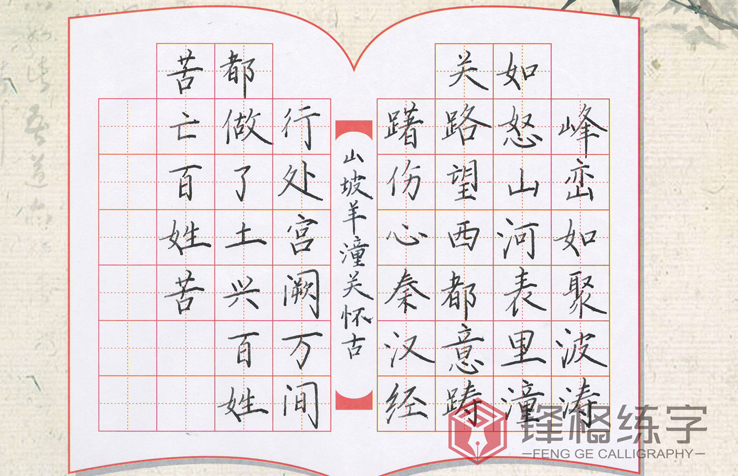 山坡羊潼关怀古
峰峦如聚波涛
如怒山河表里潼
关路望西都意踌
躇伤心秦汉经
行处宫阙万间
都做了土兴百姓
苦亡百姓苦
锋格练字
FENG GE CALLIGRAPHY